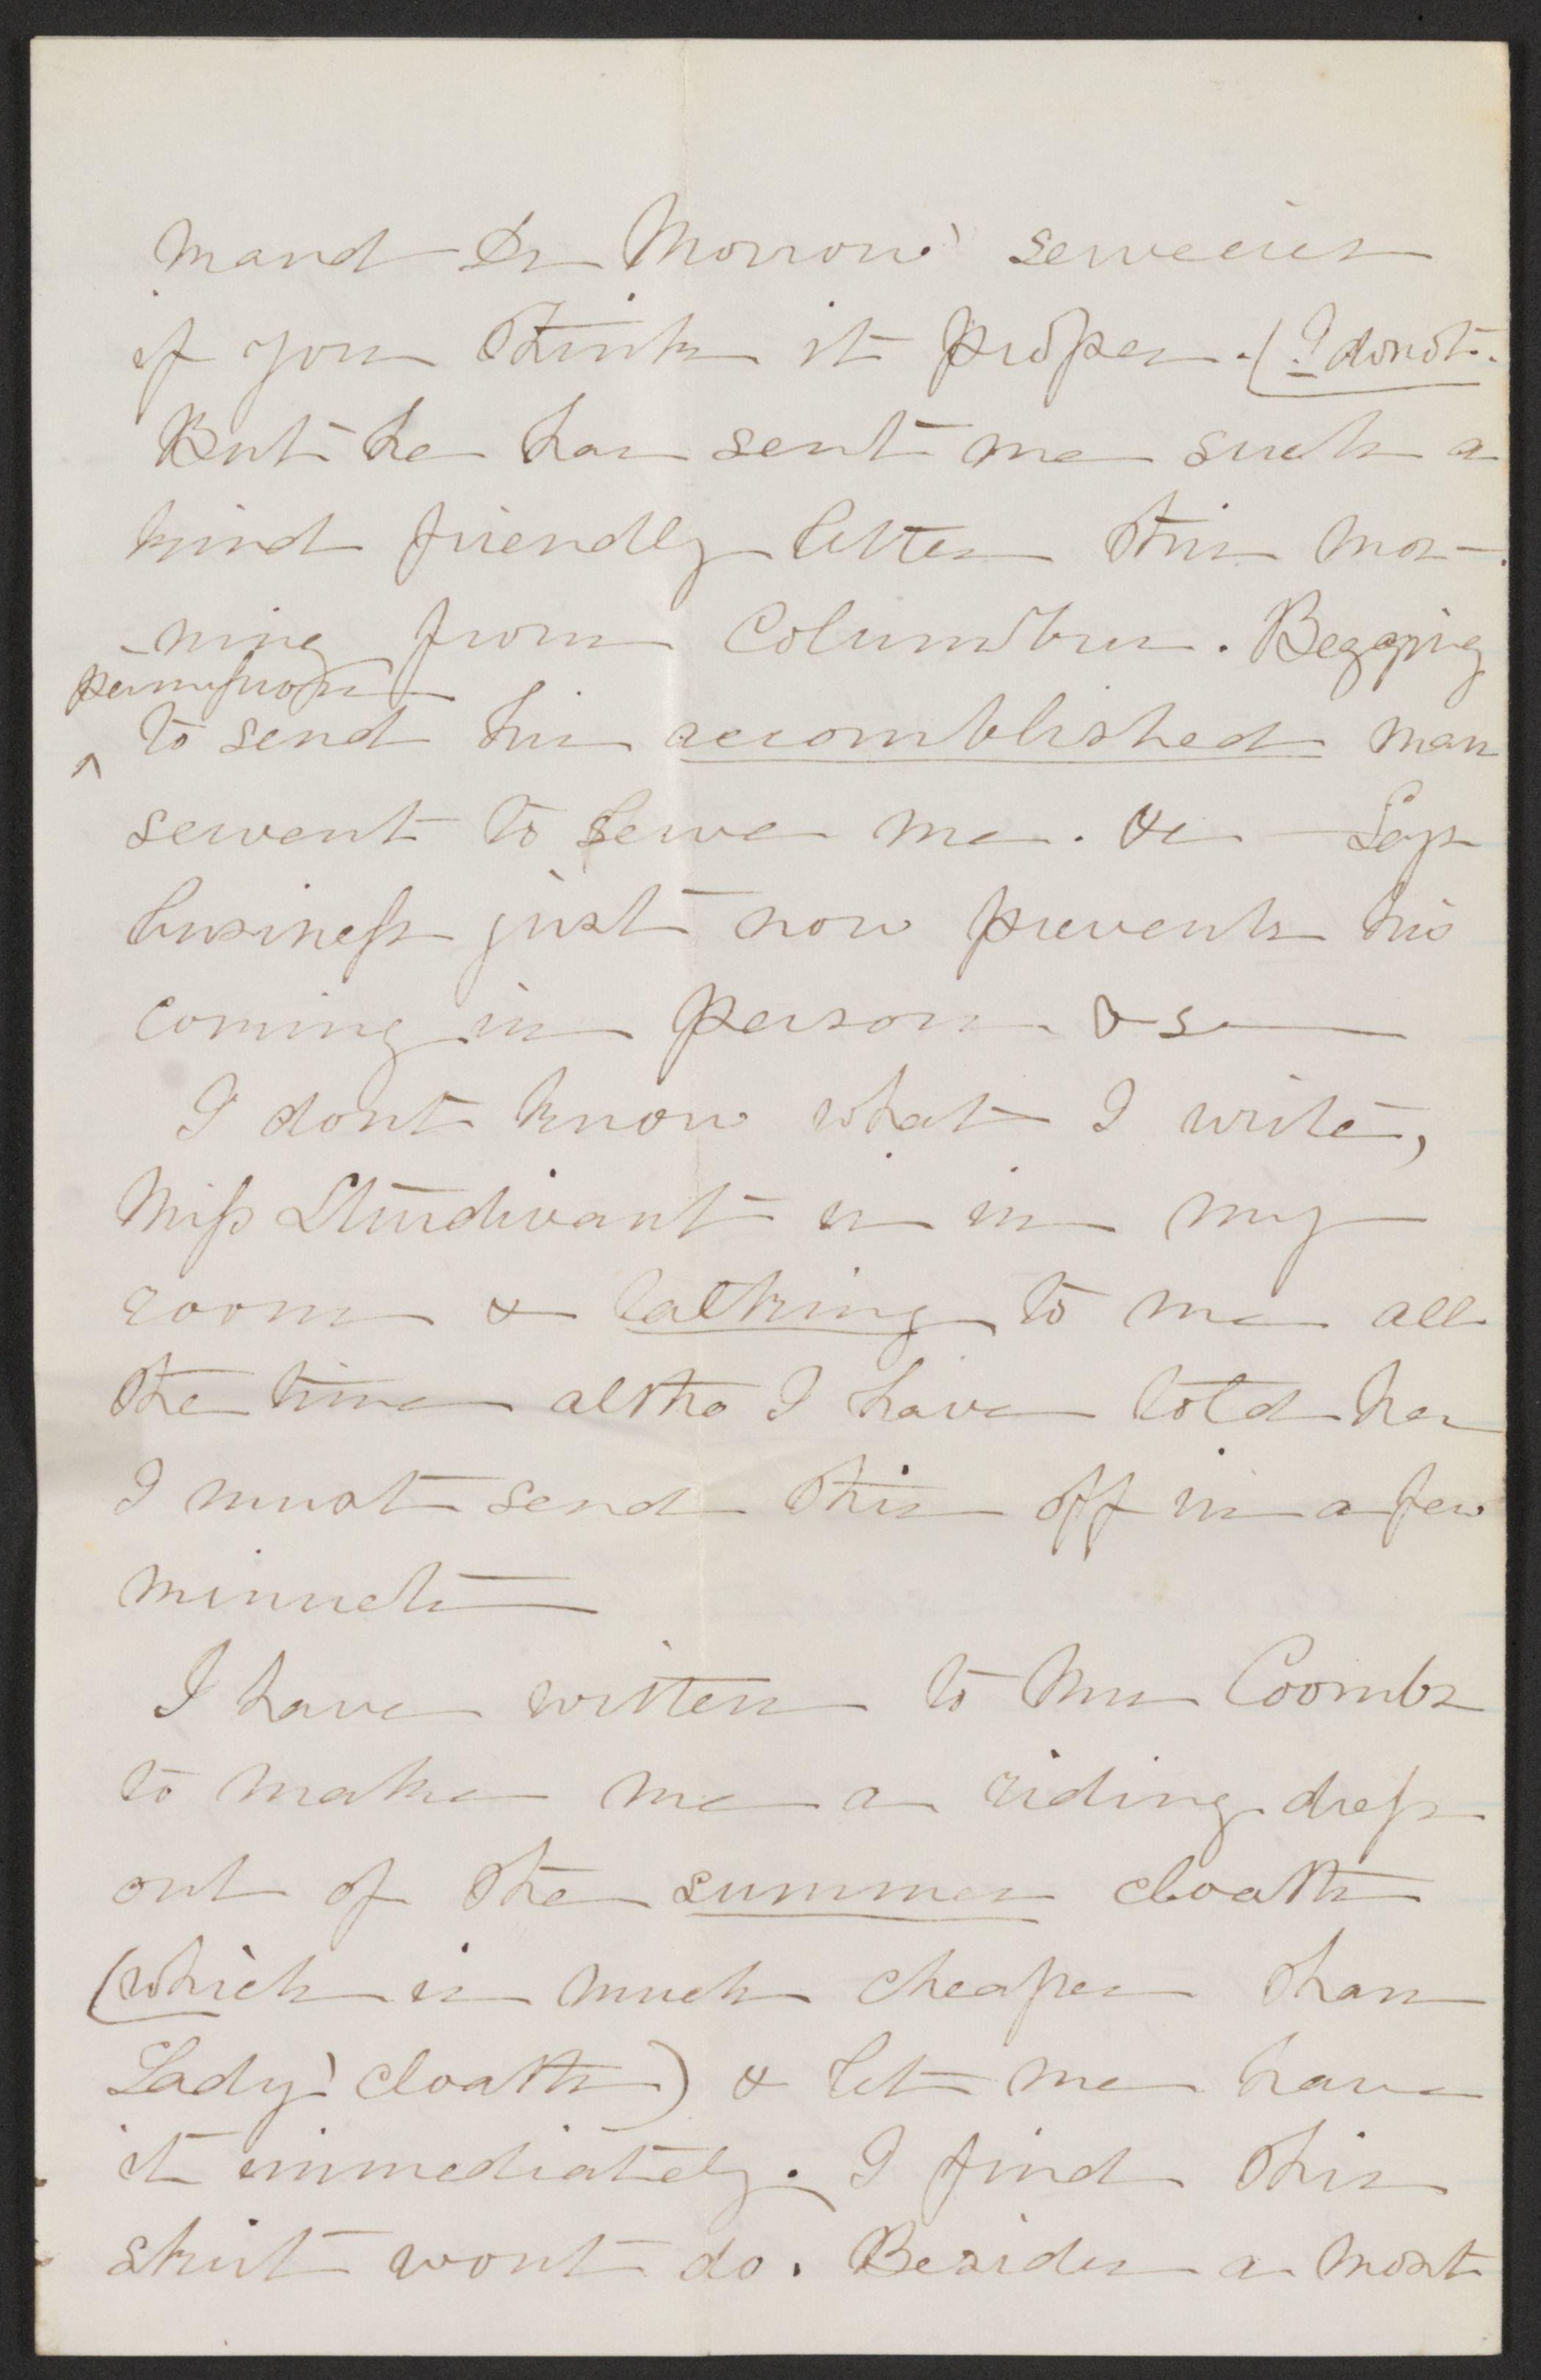 mand Dr Morrow' serveeies
if you think it proper. (I do not.
But he has sent me such a
kind friendly letter this mor-
-ning from Columbus. Begging
permission
^ to send his accomblished man
servent to serve me. &c Says
business just now prevents his
coming in person &c
I dont know what I write,
Miss Sturdivant is in my
room & talking to me all
the time altho I have told her
I must send this off in a few
minuets
I have written to Mrs Coombs
to make me a riding dress
out of the summer cloath
(which is much cheaper than
Lady' cloath) & let me have
it immediately. I find this
skirt wont do. Besides a most